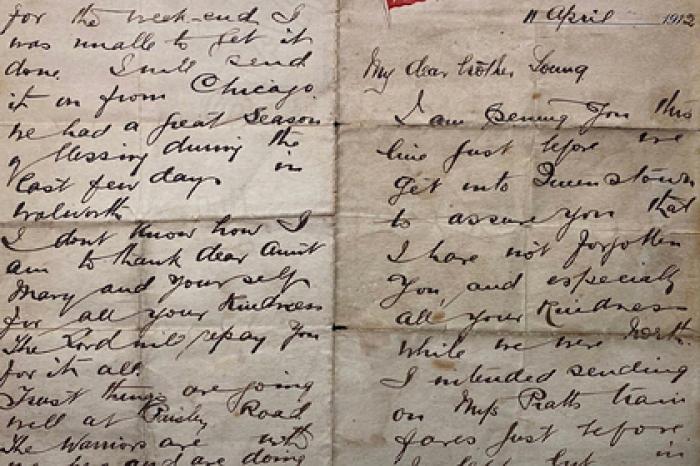 11 April 1912
My dear brother Young
I am penning you this
line just before we
get into Queenstown
to assure you that
I have not forgotten
you, and especially
all your kindness
while we were North.
I intended sending
on Miss Pratts train
fares just before
I left but in
for the week-end I
was unable to get it
done. I will send
it on from Chicago.
We had a great season
of blessing during the
last few days in
Walworth.
I dont know how I
am to thank dear Aunt
Mary and yourself
for all your kindness
The Lord will repay you
for it all.
Trust things are going
well at Paisley Road
The Warriors are with
and are doing